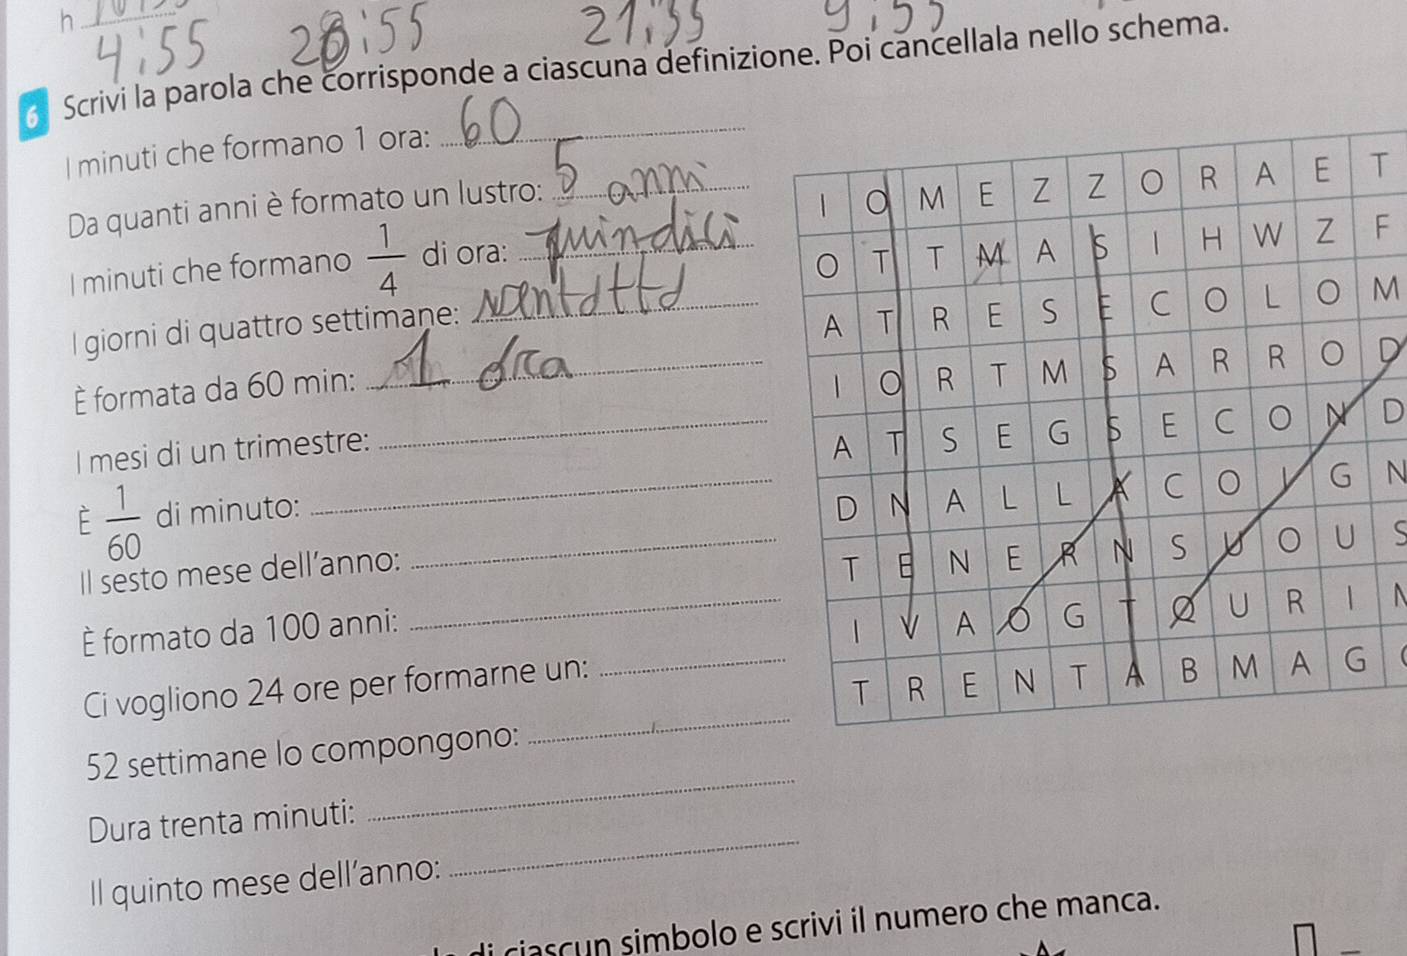 h 
4:55 20:55 21:55 9:55
6 Scrivi la parola che corrisponde a ciascuna definizione. Poi cancellala nello schema.
I minuti che formano 1 ora: 60
Da quanti anni è formato un lustro: 5 anni
I minuti che formano 1/4 di ora: quindici
I giorni di quattro settimane: ventotto
È formata da 60 min: 1 ora
I mesi di un trimestre:
È 1/60 di minuto:
Il sesto mese dell'anno:
È formato da 100 anni:
Ci vogliono 24 ore per formarne un:
52 settimane lo compongono:
Dura trenta minuti:
Il quinto mese dell'anno:
I O M E Z Z O R A E T
O T T M A S I H W Z F
A T R E S E C O L O M
I O R T M S A R R O D
A T S E G S E C O N D
D N A L L A C O I G N
T E N E R N S U O U S
I V A O G T Q U R I N
T R E N T A B M A G
di ciascun simbolo e scrivi il numero che manca.